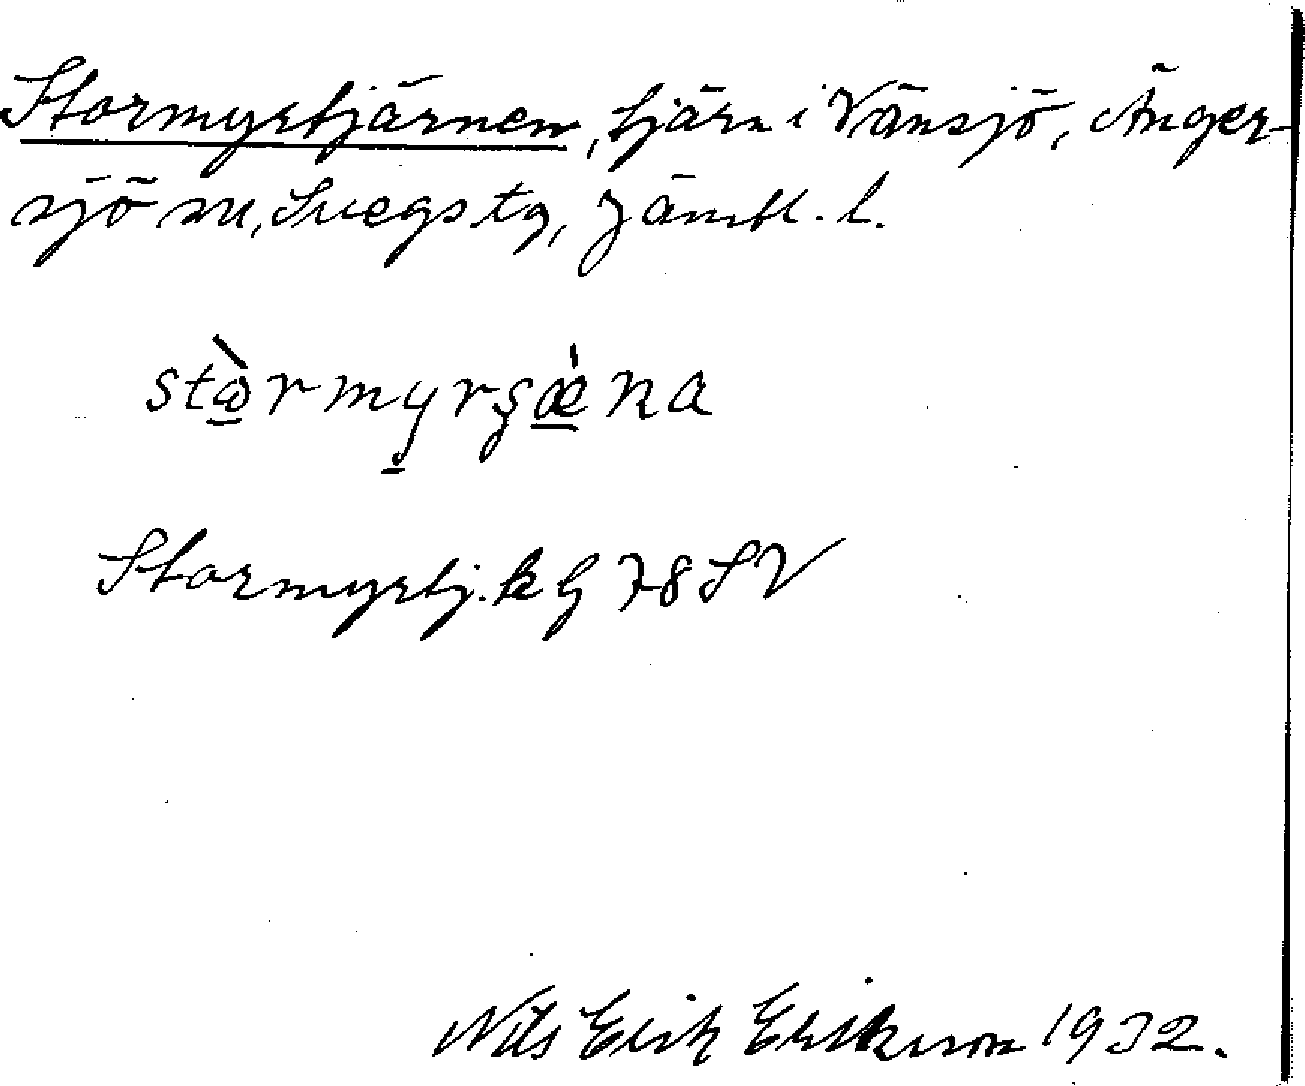 Stormyrtjärnen, tjärn i Vänsjö, Änger-
sjö sn, Svegs tg, Jämtl. l.
stɷ̀rmyrʂæ̀na
Stormyrtj. kg 78 SV
Nils Erik Eriksson 1932.